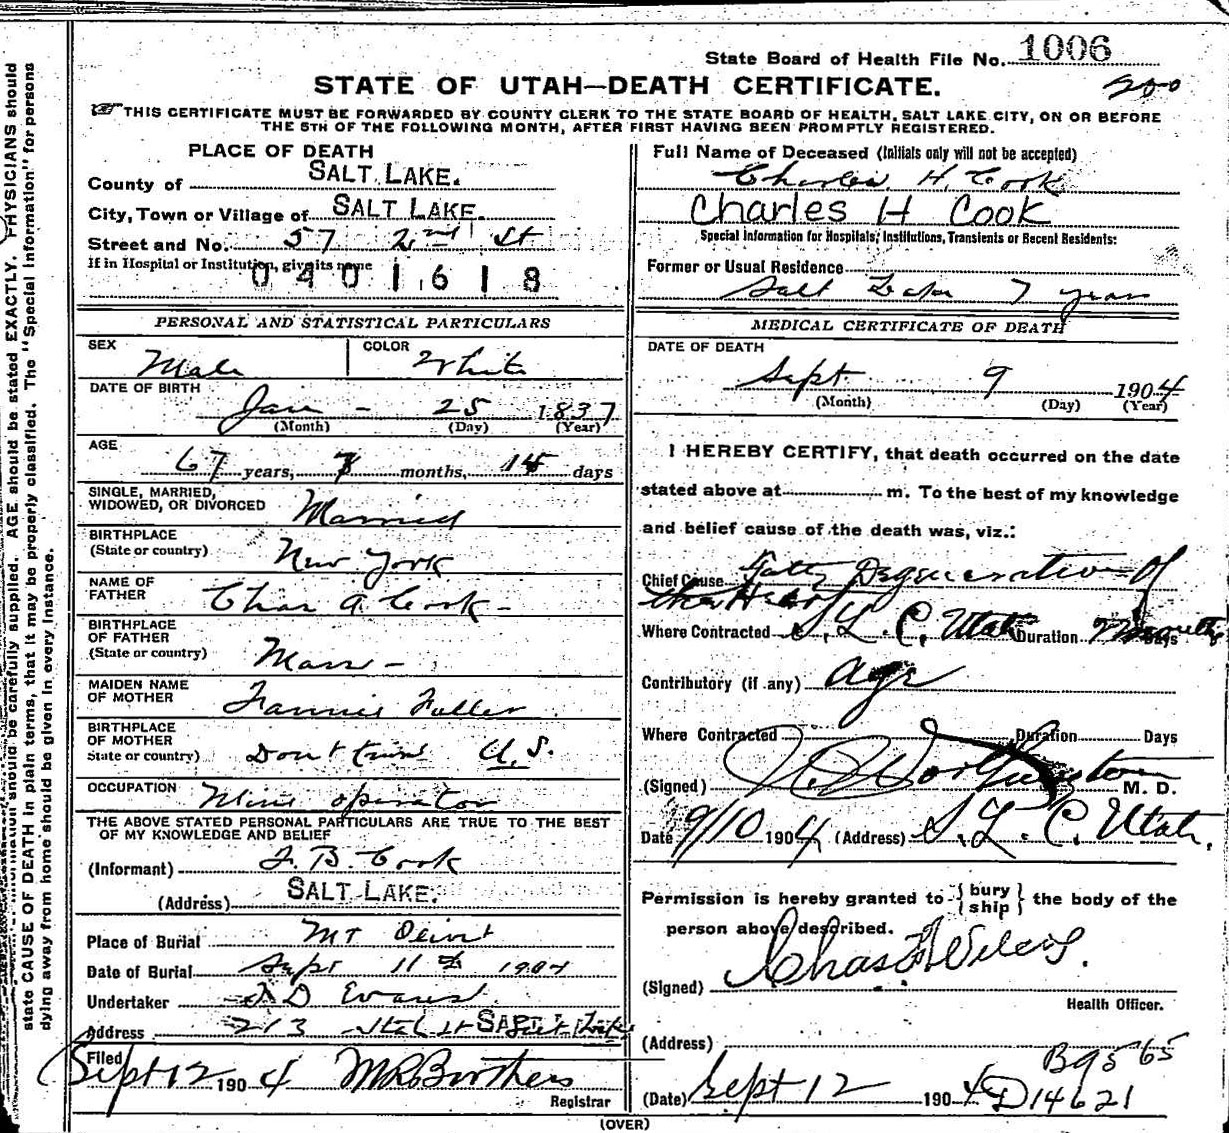 State Board of Health File No. 1006
STATE OF UTAH—DEATH CERTIFICATE.
200
THIS CERTIFICATE MUST BE FORWARDED BY COUNTY CLERK TO THE STATE BOARD OF HEALTH, SALT LAKE CITY, ON OR BEFORE
THE 5TH OF THE FOLLOWING MONTH, AFTER FIRST HAVING BEEN PROMPTLY REGISTERED.
PLACE OF DEATH
County of SALT LAKE.
City, Town or Village of SALT LAKE.
Street and No. 57 2nd St
If in Hospital or Institution, give its name
0401618
PERSONAL AND STATISTICAL PARTICULARS
SEX Male COLOR White
DATE OF BIRTH
Jan - 25 1837
(Month) (Day) (Year)
AGE
67 years, 7 months, 14 days
SINGLE, MARRIED,
WIDOWED, OR DIVORCED Married
BIRTHPLACE
(State or country) New York
NAME OF
FATHER Chas A Cook -
BIRTHPLACE
OF FATHER
(State or country) Mass -
MAIDEN NAME
OF MOTHER Fannie Fuller
BIRTHPLACE
OF MOTHER
State or country) Dont know U.S.
OCCUPATION Mine operator
THE ABOVE STATED PERSONAL PARTICULARS ARE TRUE TO THE BEST
OF MY KNOWLEDGE AND BELIEF
(Informant) F. B. Cook
(Address) SALT LAKE.
Place of Burial Mt Olivet
Date of Burial Sept 11th 1904
Undertaker D Evans
Address 213 State St Salt Lake
Filed
Sept 12 1904 M R Brothers
Registrar
Full Name of Deceased (Initials only will not be accepted)
Charles H. Cook
Charles H Cook
Special Information for Hospitals, Institutions, Transients or Recent Residents:
Former or Usual Residence
Salt Lake 7 years
MEDICAL CERTIFICATE OF DEATH
DATE OF DEATH
Sept 9 1904
(Month) (Day) (Year)
I HEREBY CERTIFY, that death occurred on the date
stated above at m. To the best of my knowledge
and belief cause of the death was, viz.:
Chief Cause Fatty Degeneration of
the Heart
Where Contracted S. L. C. Utah Duration Months Days
Contributory (if any) age
Where Contracted Duration Days
(Signed) Worthington M. D.
Date 9/10 1904 (Address) S. L. C. Utah.
Permission is hereby granted to { bury ship } the body of the
person above described.
(Signed) Chas F Wilcox.
Health Officer.
(Address)
B9565
(Date) Sept 12 1904 D14621
(OVER)
PHYSICIANS should
AGE should be stated EXACTLY.
information should be carefully supplied.
state CAUSE OF DEATH in plain terms, that it may be properly classified. The "Special Information" for persons
dying away from home should be given in every instance.